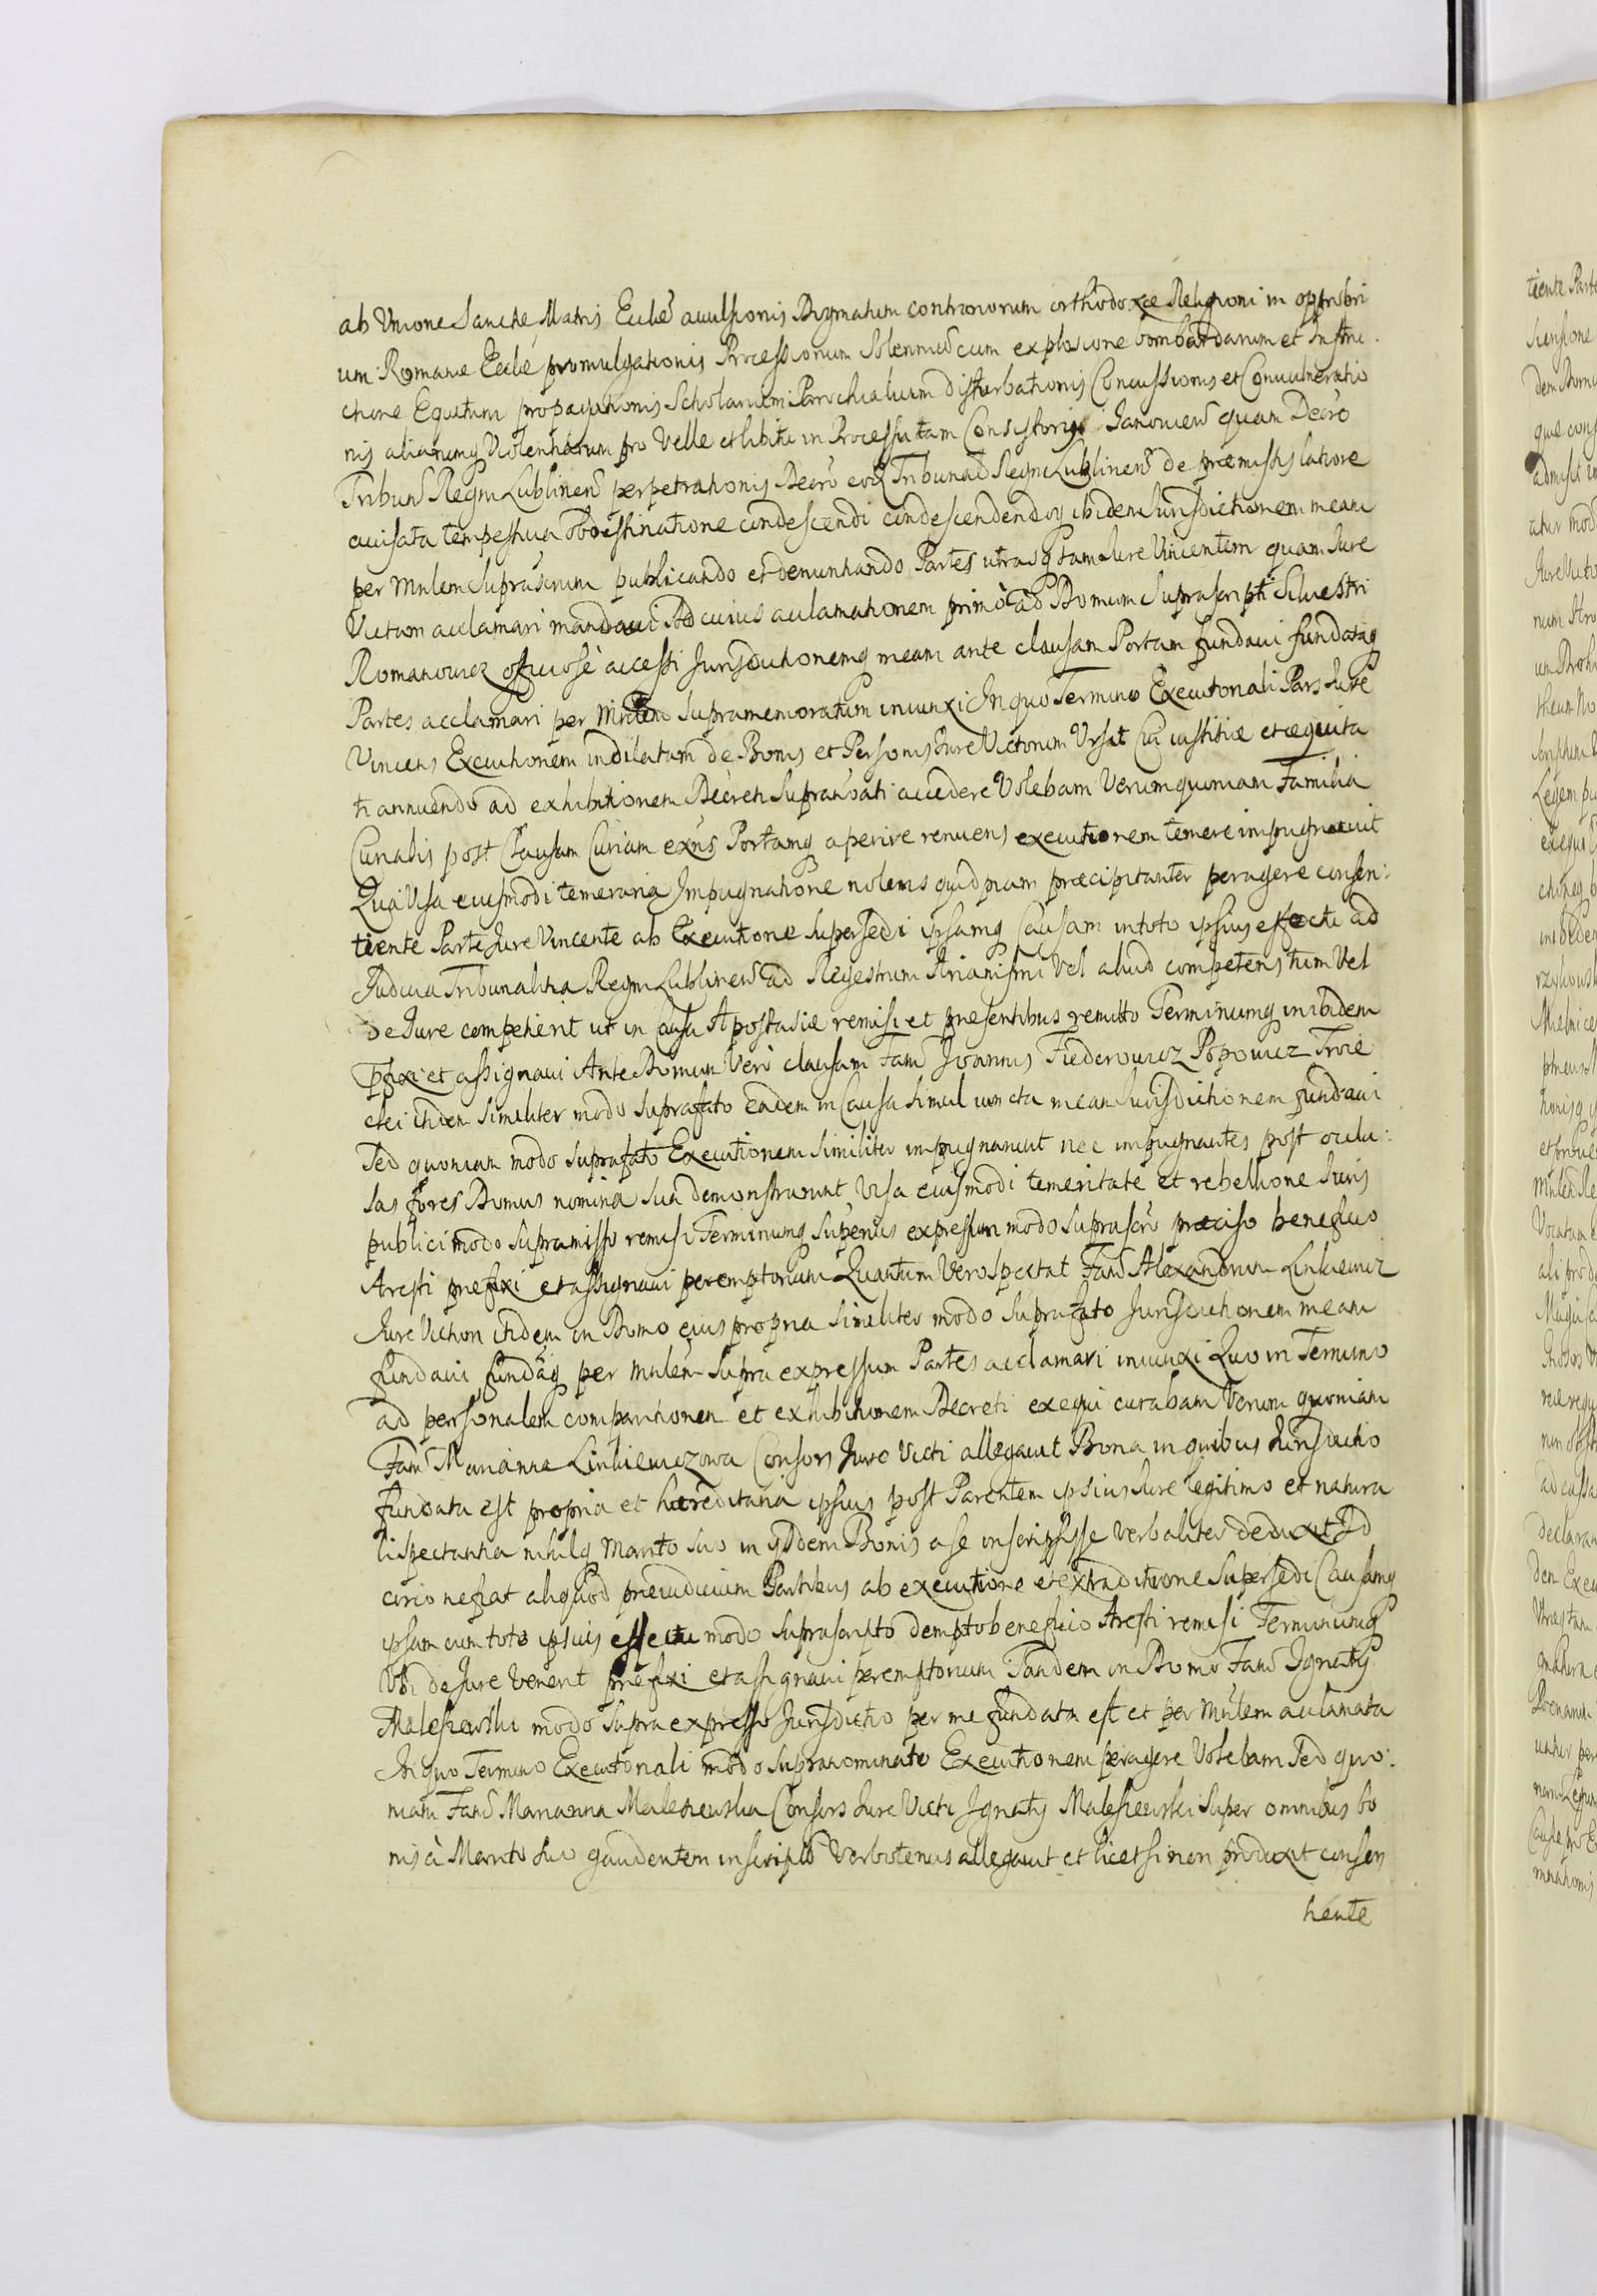 ab Unione Sanctæ Matris Eccłæ avulsionis Dogmatum contrariorum orthodoxæ Religioni in opprobri
um Romanæ Eccłæ promulgationis Processionum solennium cum explosione bombardarum et Instru
ctione Equitum propagationis Scholarum Parochialium disturbationis Concussionis et Convulneratio
nis aliarumq Violentiarum pro Velle et libitu in Processu tam Consistorij Janovien quam Decro
Tribun Regni Lublinen perpetrationis Decro eodem Tribunal Regni Lublinen de præmissis latiore
avisata tempestiva obdestinatione condescendi condescendendoq ibidem Jurisdictionem meam
per Mnlem suprascrum publicando et denuntiando Partes utrasq tam Jure Vincentem quam Jure
Victam acclamari mandavi Ad cuius acclamationem primo ad Domum suprascripti Silvestri
Romanowicz officiosè accessi Jurisdictionemq meam ante clausam Portam fundavi fundataq
Partes acclamari per Mnlem supramemoratum iniunxi In quo Termino Executionali Pars Jure
Vincens Executionem indilatam de Bonis et Personis Jure Victorum Ursit Cui iustitiæ et æquita
ti annuendo ad exhibitionem Decreti supranoati accedere Volebam Verum quoniam Familia
Curialis post Clausam Curiam exns Portamq aperire renuens executionem temere impugnavit
Qua Visa eiusmodi temeraria Impugnatione nolens quidpiam præcipitanter peragere consen:
tiente Parte Jure Vincente ab Executione supersedi ipsamq Causam in toto ipsius effectu ad
Judicia Tribunalitia Regni Lublinen ad Regestrum Arianismi Vel aliud competens tum Vel
de Jure competierit ut in Causa Apostasiæ remisi et præsentibus remitto Terminumq inibidem
præfixi et assignavi Ante Domum Vero clausam Fam Joannis Fiederowicz Popowicz Troie
ckei itidem similiter modo suprafato Eadem in Causa simul iuncta meam Jurisdictionem fundavi
Sed quoniam modo suprafato Executionem similiter impugnarunt nec impugnantes post occlu:
sas fores Domus nomina sua demonstrarunt Visa eiusmodi temeritate et rebellione Juris
publici modo supramisso remisi Terminumq superius expressum modo suprascro præciso beneficio
Aresti præfixi et assignavi peremptorium Quantum Vero spectat Fam Alexandrum Linkiewicz
Jure Victum itidem in Domo eius propria similiter modo suprafato Jurisdictionem meam
fundavi fundaq per Mnlem supra expressum Partes acclamari iniunxi Quo in Termino
ad personalem comparitionem et exhibitionem Decreti exequi curabam Verum quoniam
Fam Marianna Linkiewiczowa Consors Jure Victi allegavit Bona in quibus Jurisdictio
fundata est propria et hæreditaria ipsius post Parentem ipsius Jure legitimo et natura
li spectantia nihilq Marito suo in iisdem Bonis a se inscripsisse Verbaliter deduxit Id
circo ne fiat aliquod præiudicium Partibus ab executione et extraditione supersedi Causamq
ipsam cum toto ipsius effectu modo suprascripto dempto beneficio Aresti remisi Terminumq
Ubi de Jure Venerit præfixi et assignavi peremptorium Tandem in Domo Fam Ignatij
Maleszewski modo supra expresso Jurisdictio per me fundata est et per Mnlem acclamata
In quo Termino Executionali modo supranominato Executionem peragere Volebam Sed quo:
niam Fam Marianna Maleszewska Consors Jure Victi Ignatij Maleszewski super omnibus bo
nis à Marito suo gaudentem inscriptio Verbotenus allegavit et licet si non produxit consen
tiente